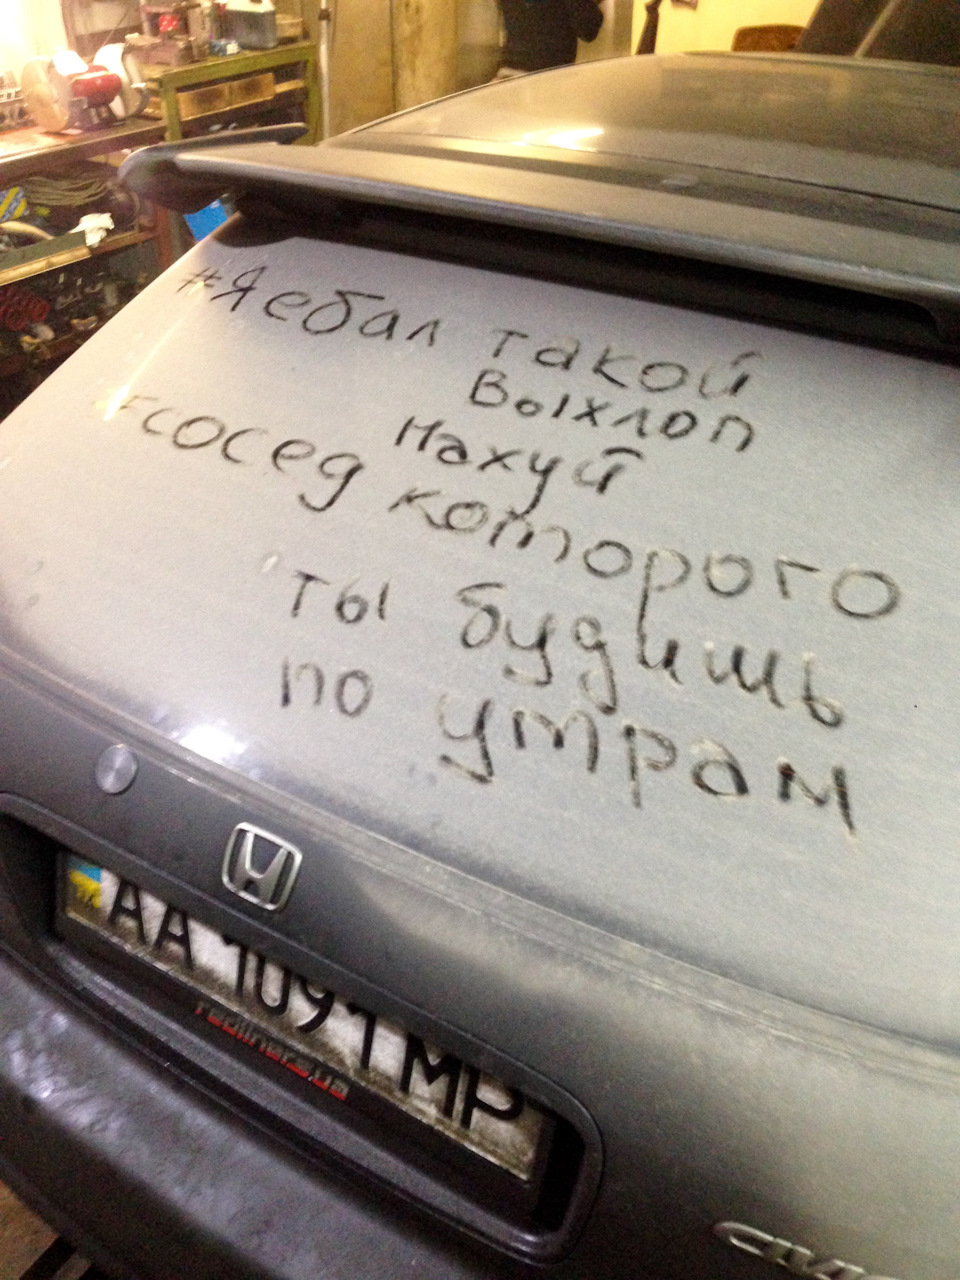 #Я ебал такой
выхлоп
нахуй
#сосед которого
ты будишь
по утрам
AA 1091 MP
redliners.ua
CIVIC